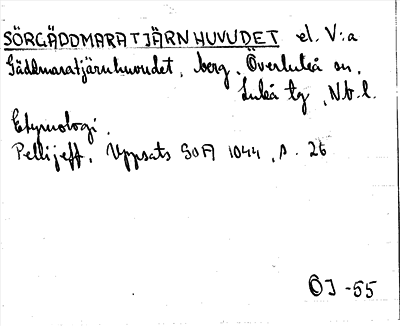 SÖRGÄDDMARATJÄRNHUVUDET el. V:a
Gäddmaratjärnhuvudet, berg. Överluleå sn,
Luleå tg, N.b.l.
Etymologi.
Pellijeff, Uppsats SOFI 1044, s. 26
ÖJ -55